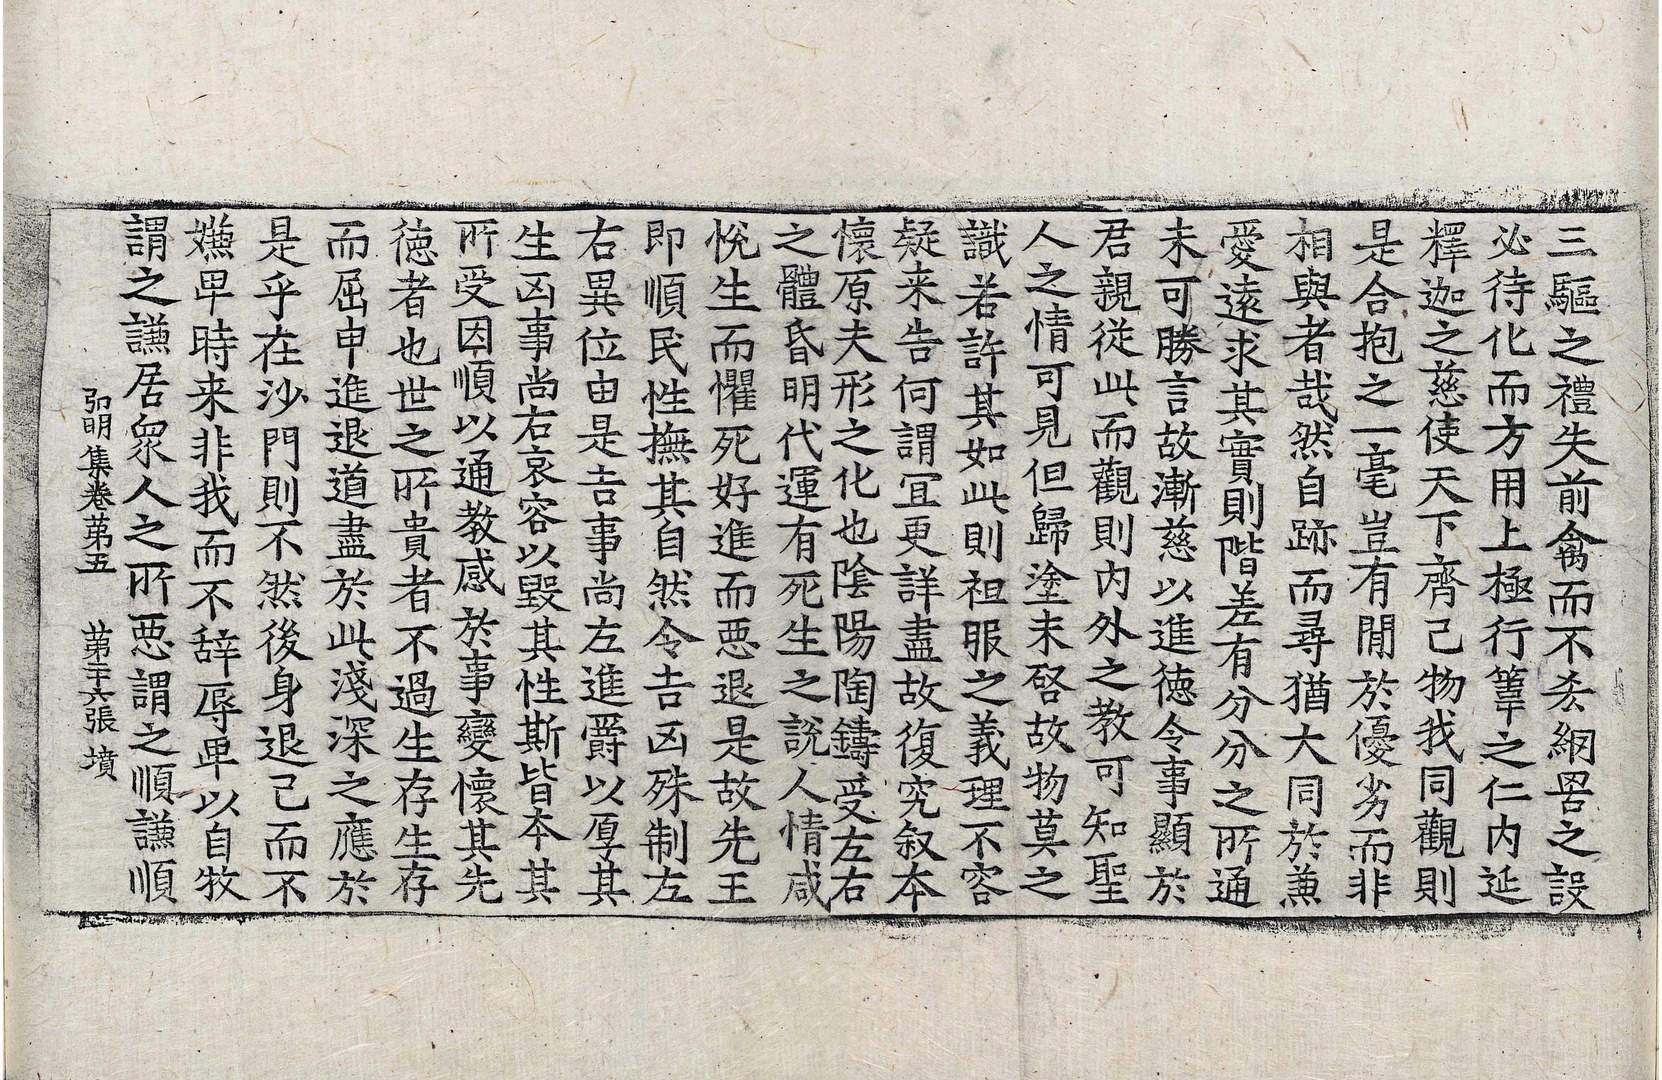 三驅之禮失前禽而不𠫤網罟之設
必待化而方用上極行葦之仁內延
釋迦之慈使天下齊己物我同觀則
是合抱之一毫豈有閒於優劣而非
相與者哉然自跡而尋猶大同於兼
愛遠求其實則階差有分分之所通
未可勝言故漸慈以進德令事顯於
君親從此而觀則內外之教可知聖
人之情可見但歸塗未啓故物莫之
識若許其如此則袒服之義理不容
疑来告何謂冝更詳盡故復究叙本
懷原夫形之化也陰陽陶鑄受左右
之體昏明代運有死生之說人情咸
悅生而懼死好進而惡退是故先王
即順民性撫其自然令吉凶殊制左
右異位由是吉事尚左進爵以厚其
生凶事尚右哀容以毀其性斯皆本其
所受因順以通教感於事變懷其先
德者也世之所貴者不過生存生存
而屈申進退道盡於此淺深之應於
是乎在沙門則不然後身退己而不
嫌卑時来非我而不辞辱卑以自牧
謂之謙居衆人之所惡謂之順謙順
弘明集卷第五　第三十六張　墳